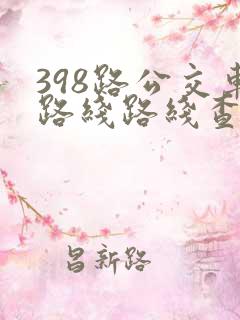 398路公交车
路线路线查
昌新路